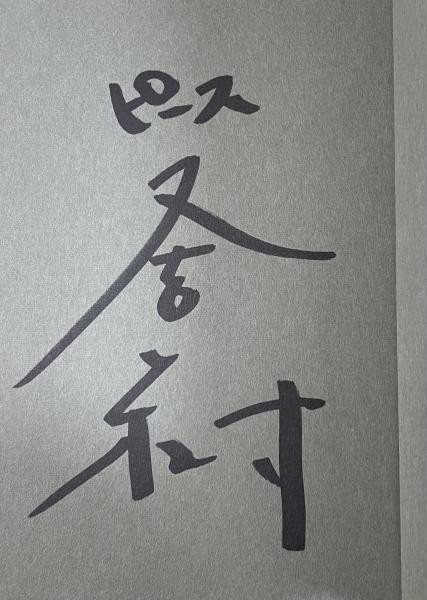 ピース
又吉